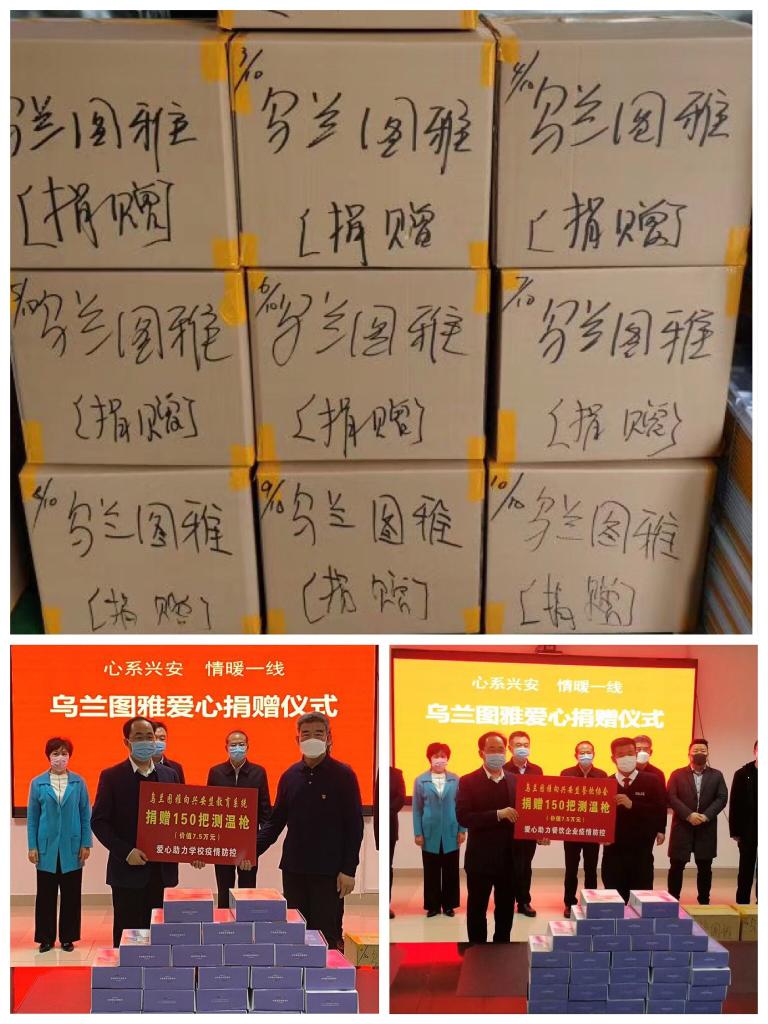 乌兰图雅
[捐赠]
3/10
乌兰图雅
[捐赠
4/10
乌兰图雅
[捐赠]
5/10
乌兰图雅
[捐赠]
6/10
乌兰图雅
[捐赠]
7/10
乌兰图雅
[捐赠]
8/10
乌兰图雅
[捐赠]
9/10
乌兰图雅
[捐赠]
10/10
乌兰图雅
[捐赠]
心系兴安 情暖一线
乌兰图雅爱心捐赠仪式
乌兰图雅向兴安盟教育系统
捐赠150把测温枪
(价值7.5万元)
爱心助力学校疫情防控
心系兴安 情暖一线
乌兰图雅爱心捐赠仪式
乌兰图雅向兴安盟餐饮协会
捐赠150把测温枪
(价值7.5万元)
爱心助力餐饮企业疫情防控